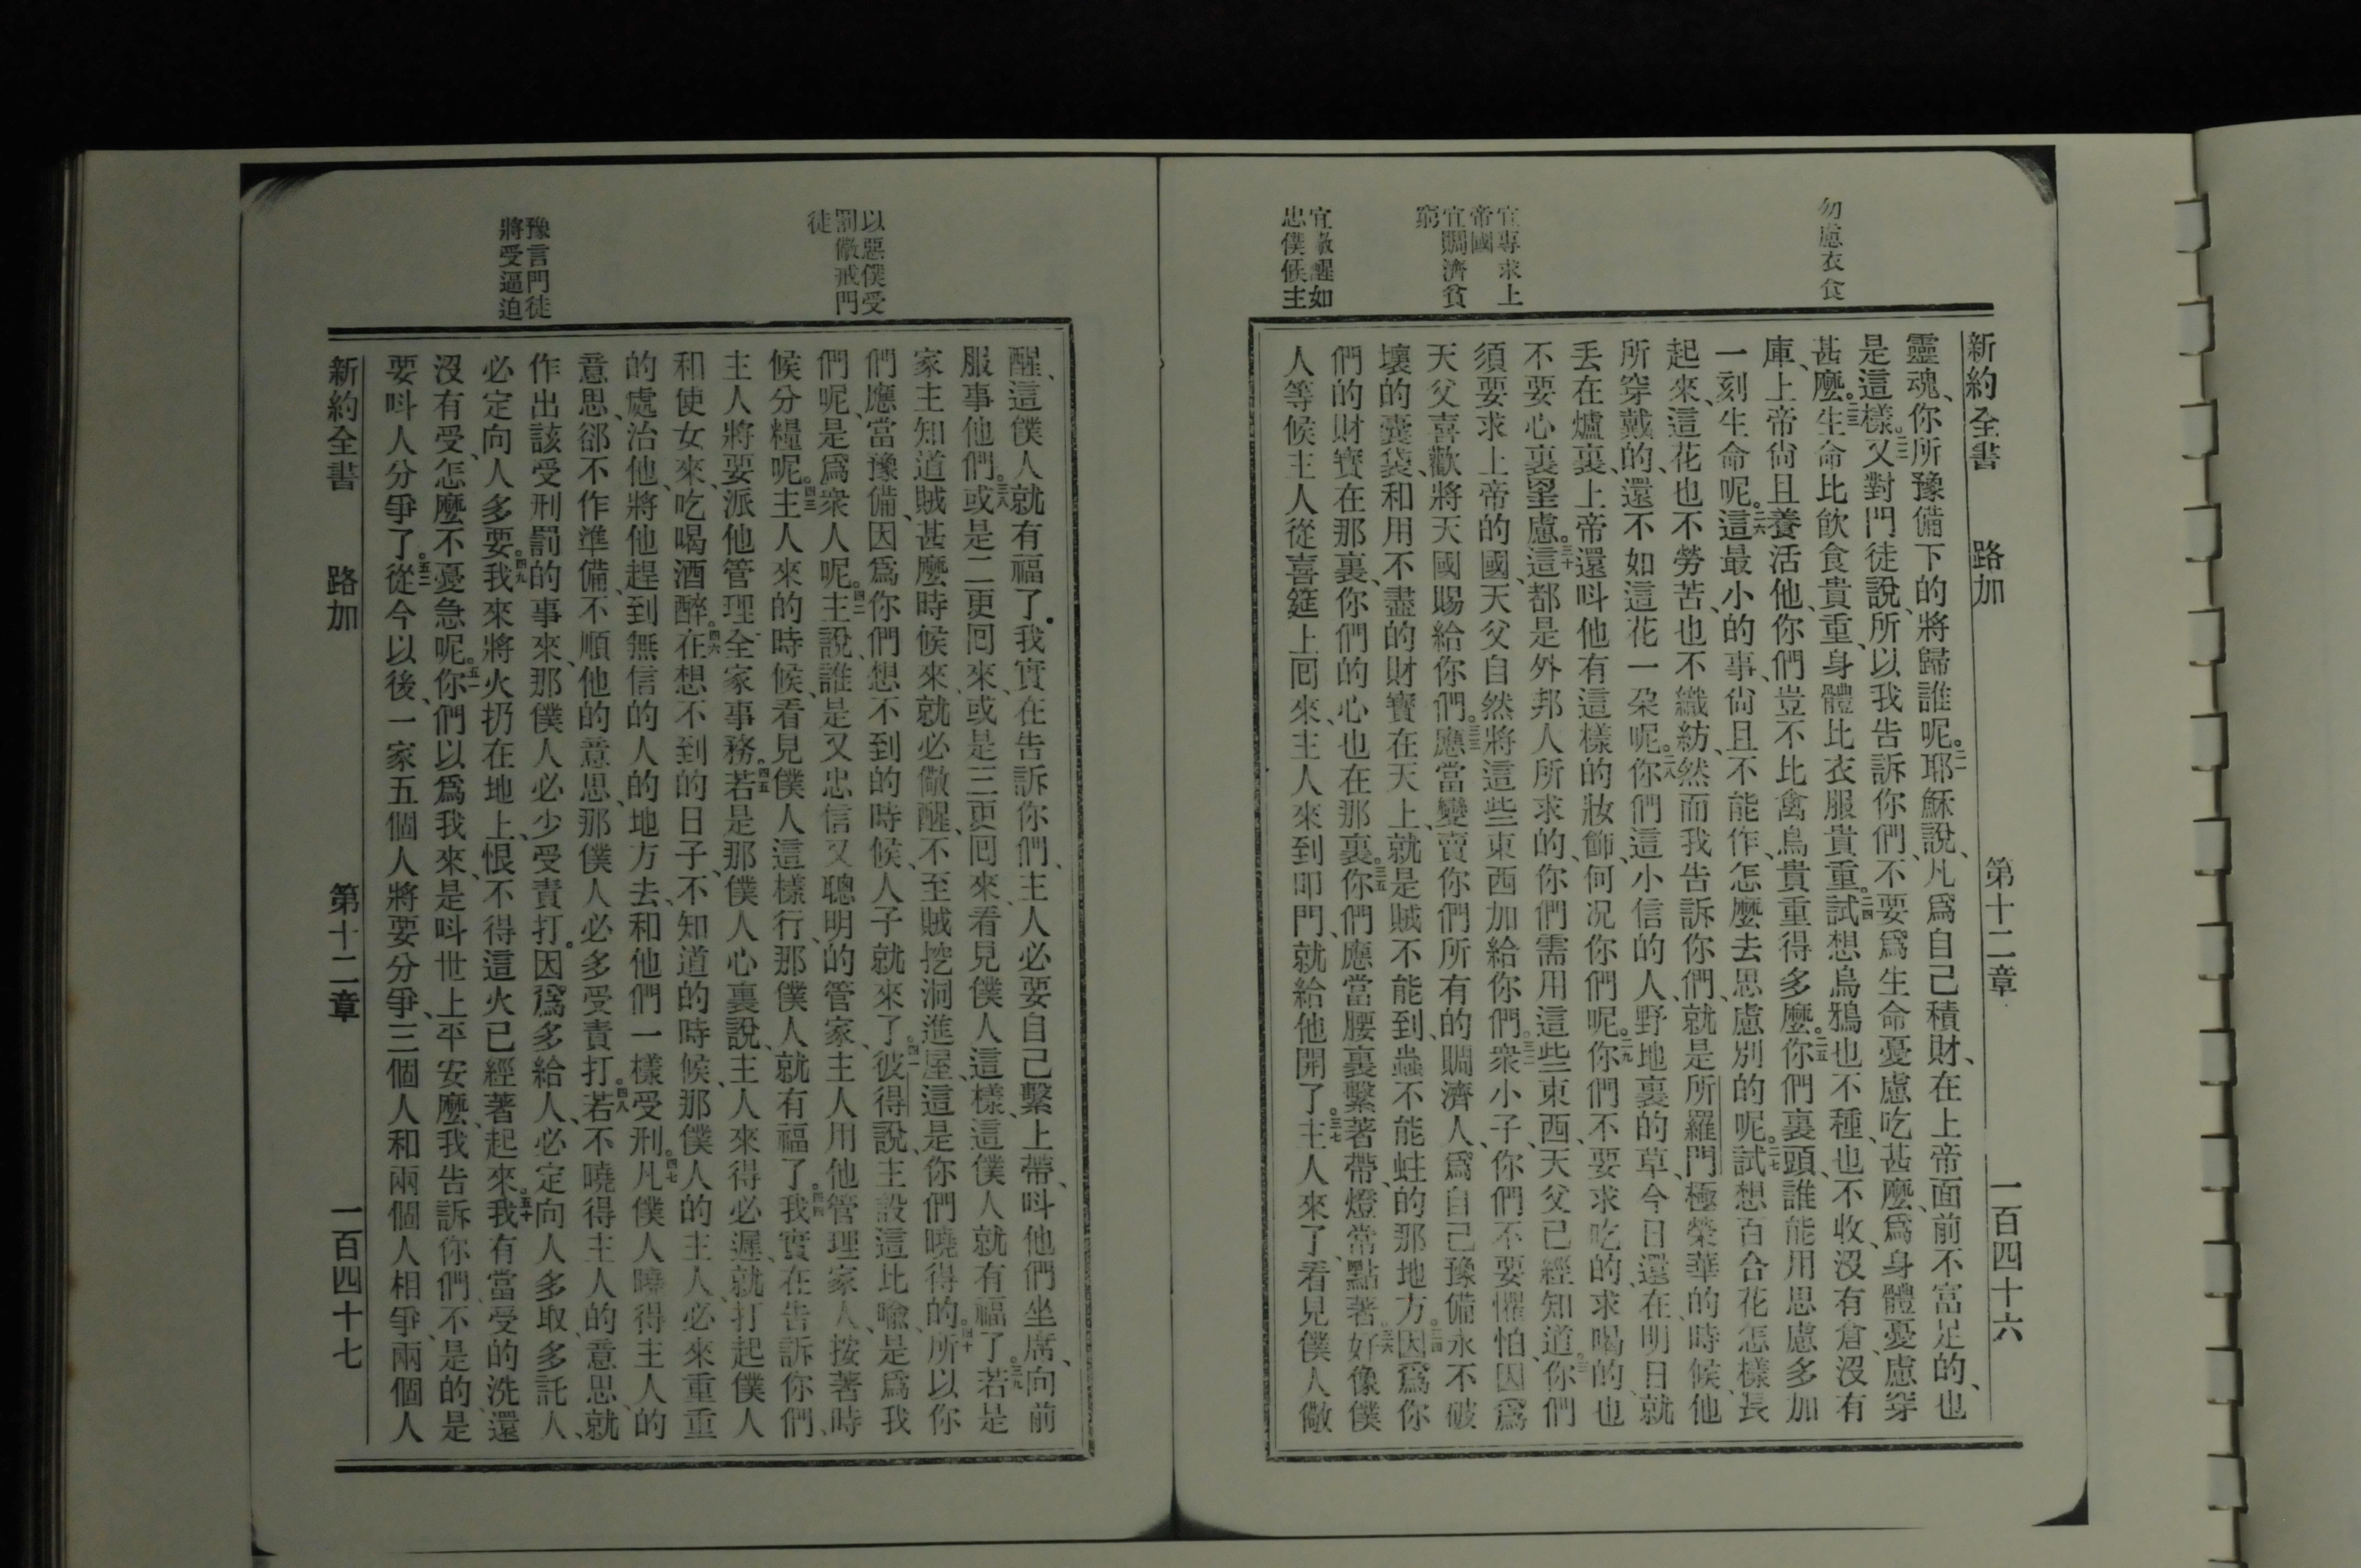 勿慮衣食
宜專求上
帝國
宜賙濟貧
窮
宜儆醒如
忠僕候主
新約全書 路加 第十二章 一百四十六
靈魂、你所豫備下的將歸誰呢。二一耶穌說、凡爲自己積財、在上帝面前不富足的、也
是這樣。二二又對門徒說、所以我告訴你們、不要爲生命憂慮吃甚麼、爲身體憂慮穿
甚麼。二三生命比飮食貴重、身體比衣服貴重。二四試想烏鴉也不種、也不收、沒有倉、沒有
庫、上帝尙且養活他、你們豈不比禽鳥貴重得多麼。二五你們裏頭、誰能用思慮多加
一刻生命呢。二六這最小的事、尙且不能作、怎麼去思慮別的呢。二七試想百合花怎樣長
起來、這花也不勞苦、也不織紡、然而我告訴你們、就是所羅門極榮華的時候、他
所穿戴的、還不如這花一朶呢。二八你們這小信的人、野地裏的草、今日還在、明日就
丟在爐裏、上帝還呌他有這樣的妝飾、何况你們呢。二九你們不要求吃的、求喝的、也
不要心裏罣慮。三十這都是外邦人所求的、你們需用這些東西、天父已經知道。三一你們
須要求上帝的國、天父自然將這些東西加給你們。三二衆小子、你們不要懼怕、因爲
天父喜歡將天國賜給你們。三三應當變賣你們所有的賙濟人、爲自己豫備永不破
壞的囊袋、和用不盡的財寶在天上、就是賊不能到、蟲不能蛀的那地方。三四因爲你
們的財寶在那裏、你們的心也在那裏。三五你們應當腰裏繫著帶、燈常點著。三六好像僕
人等候主人從喜筵上囘來、主人來到叩門、就給他開了。三七主人來了、看見僕人儆
以惡僕受
罰儆戒門
徒
豫言門徒
將受逼迫
醒、這僕人就有福了。我實在告訴你們、主人必要自己繫上帶、呌他們坐席、向前
服事他們。三八或是二更囘來、或是三更囘來、看見僕人這樣、這僕人就有福了。三九若是
家主知道賊甚麼時候來、就必儆醒、不至賊挖洞進屋、這是你們曉得的。四十所以你
們應當豫備、因爲你們想不到的時候、人子就來了。四一彼得說、主設這比喻、是爲我
們呢、是爲衆人呢。四二主說、誰是又忠信又聰明的管家、主人用他管理家人、按著時
候分糧呢。四三主人來的時候、看見僕人這樣行、那僕人就有福了。四四我實在告訴你們、
主人將要派他管理全家事務。四五若是那僕人心裏說、主人來得必遲、就打起僕人
和使女來、吃喝酒醉。四六在想不到的日子、不知道的時候、那僕人的主人、必來重重
的處治他、將他趕到無信的人的地方去、和他們一樣受刑。四七凡僕人曉得主人的
意思、卻不作準備、不順他的意思、那僕人必多受責打。四八若不曉得主人的意思、就
作出該受刑罰的事來、那僕人必少受責打。因爲多給人、必定向人多取、多託人、
必定向人多要。四九我來將火扔在地上、恨不得這火已經著起來。五十我有當受的洗、還
沒有受、怎麼不憂急呢。五一你們以爲我來、是呌世上平安麼、我告訴你們、不是的、是
要呌人分爭了。五二從今以後、一家五個人將要分爭、三個人和兩個人相爭、兩個人
新約全書 路加 第十二章 一百四十七